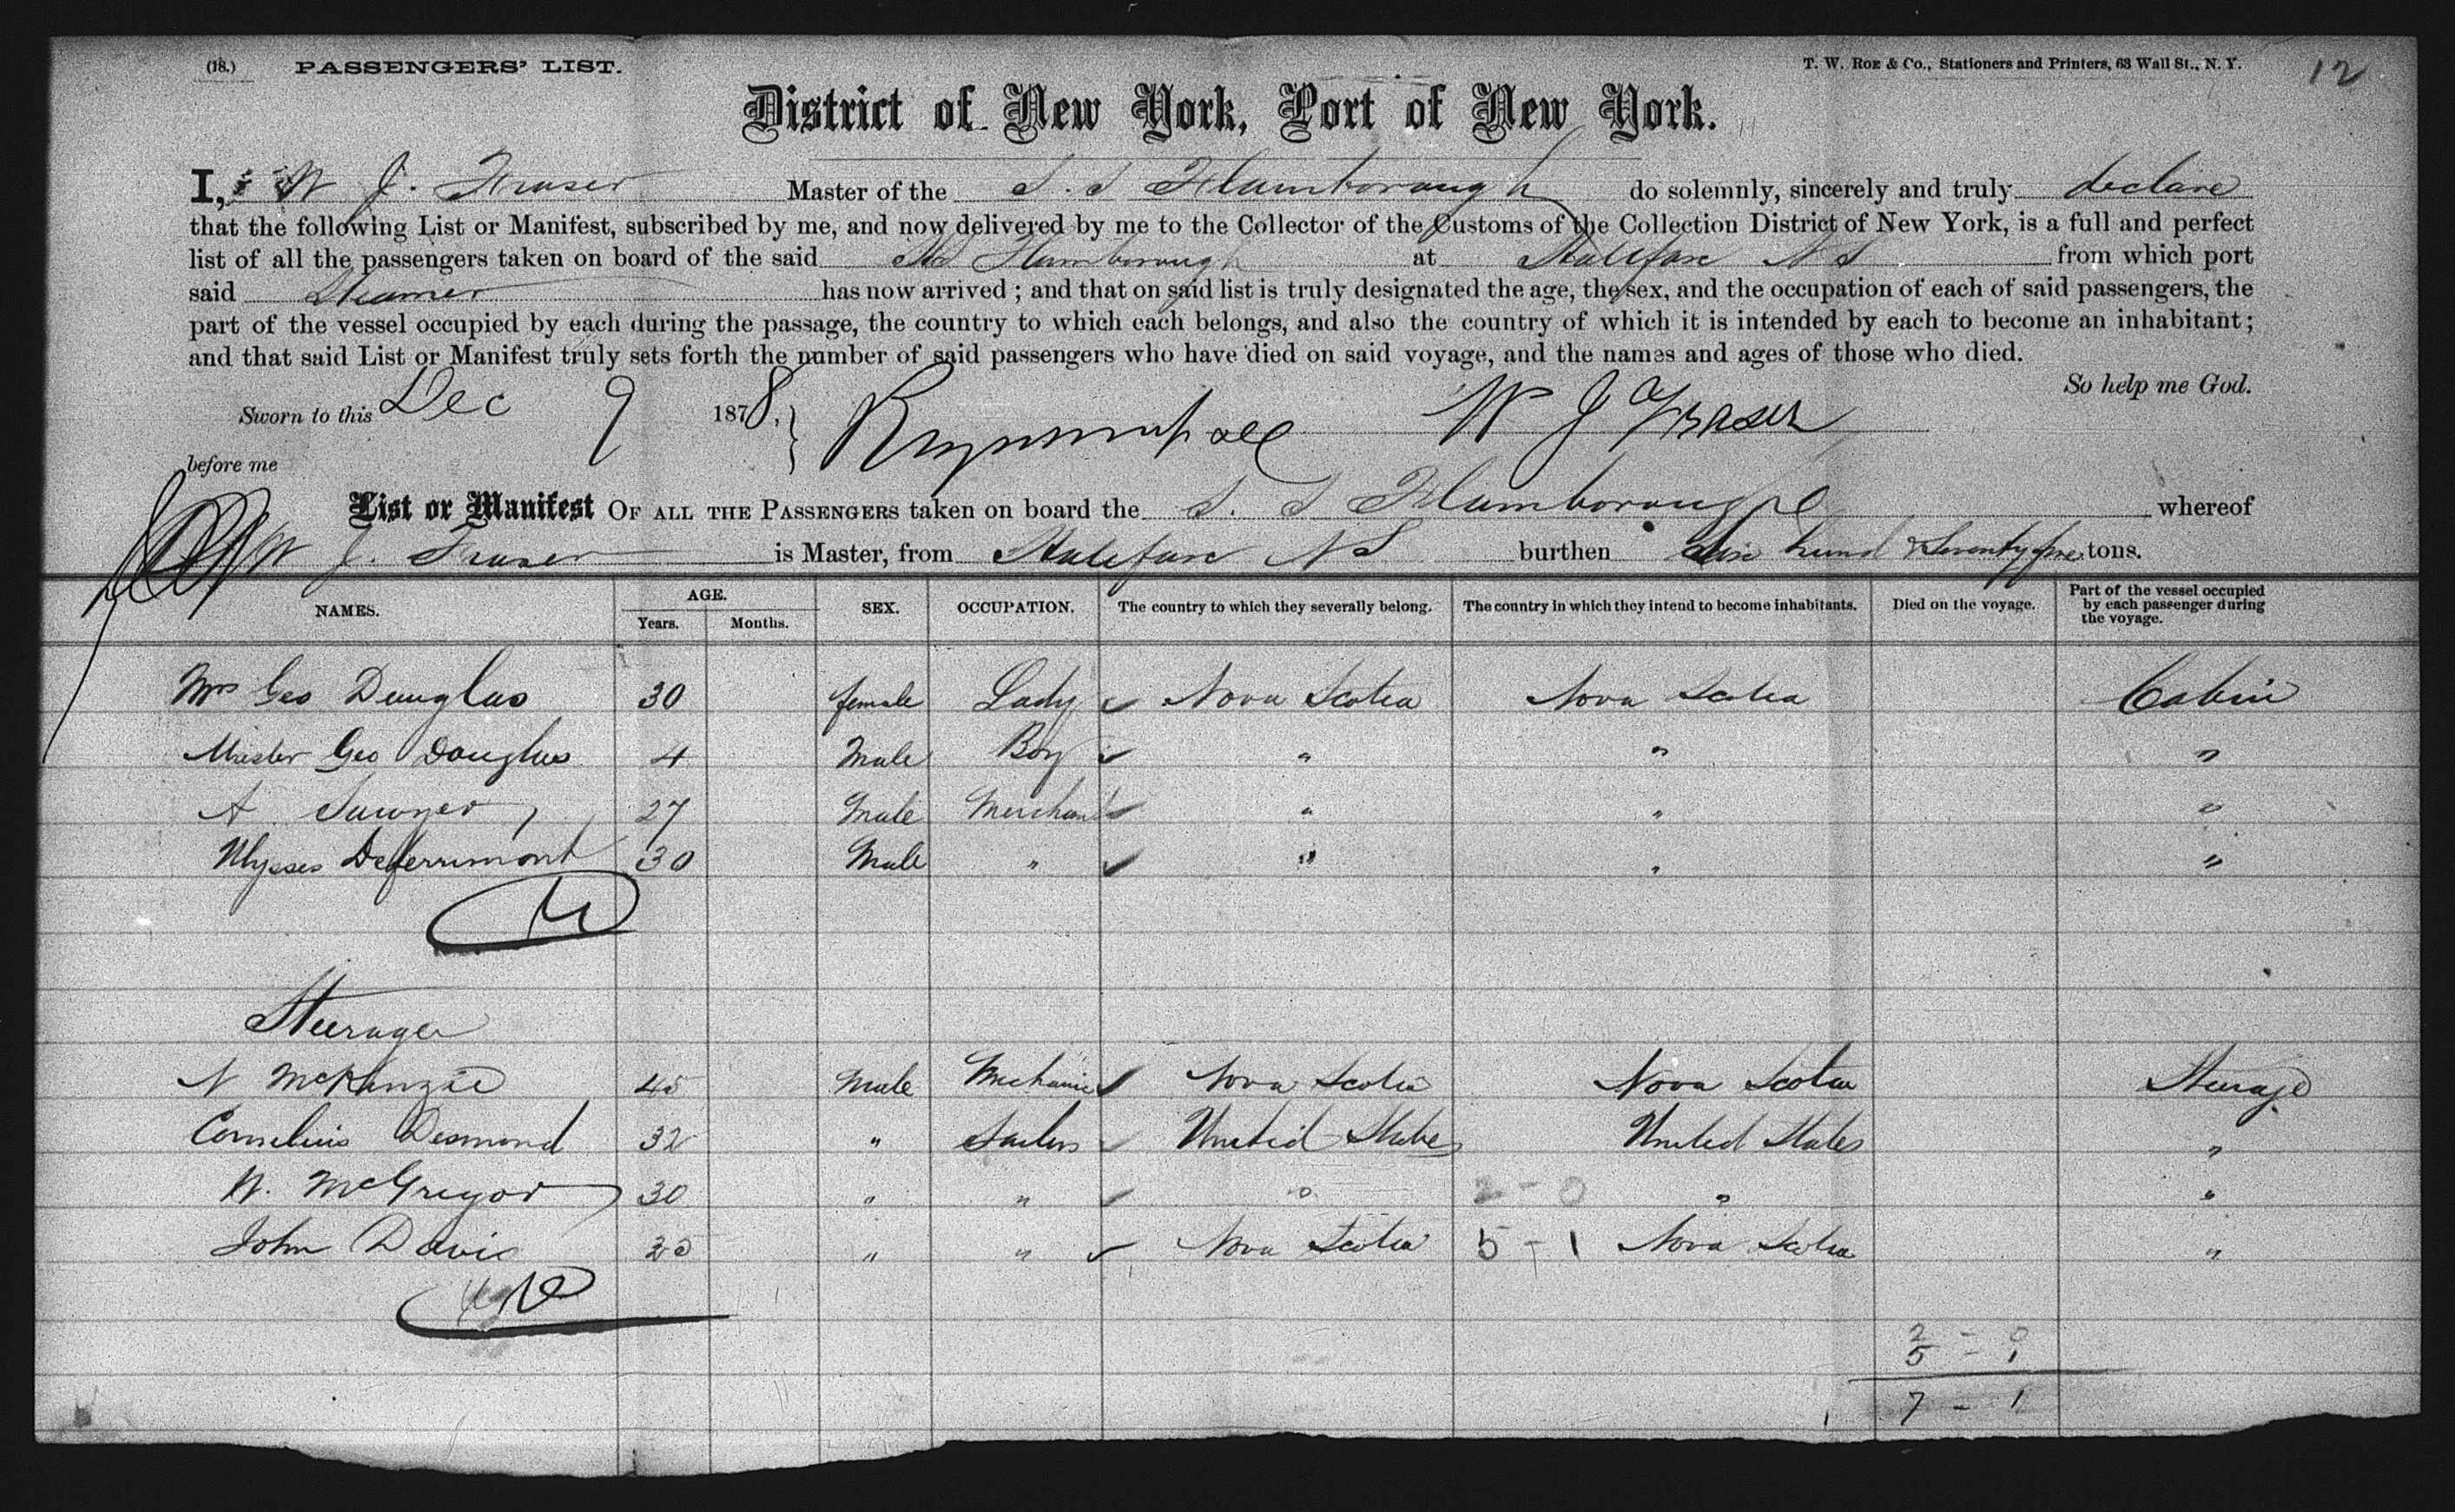 (18.) PASSENGERS' LIST. T. W. ROE & Co., Stationers and Printers, 63 Wall St., N. Y. 12
District of New York, Port of New York.
I, W J. Fraser Master of the S. S Flamborough do solemnly, sincerely and truly declare
that the following List or Manifest, subscribed by me, and now delivered by me to the Collector of the Customs of the Collection District of New York, is a full and perfect
list of all the passengers taken on board of the said SS Flamborough at Halifax N S from which port
said Steamer has now arrived; and that on said list is truly designated the age, the sex, and the occupation of each of said passengers, the
part of the vessel occupied by each during the passage, the country to which each belongs, and also the country of which it is intended by each to become an inhabitant;
and that said List or Manifest truly sets forth the number of said passengers who have died on said voyage, and the names and ages of those who died.
So help me God.
Sworn to this Dec 9 1878, W J Fraser
before me
List or Manifest OF ALL THE PASSENGERS taken on board the S. S Flamborough whereof
W J. Fraser is Master, from Halifax N S burthen hund & Seventy five tons.
NAMES. AGE. Years. Months. SEX. OCCUPATION. The country to which they severally belong. The country in which they intend to become inhabitants. Died on the voyage. Part of the vessel occupied by each passenger during the voyage.
Mrs Geo Douglas 30 female Lady Nova Scotia Nova Scotia Cabin
Master Geo Douglas 4 Male Boy " " "
A Sawyer 27 Male Merchant " " "
Ulysses 30 Male " " " "
4
Steerage
N McKenzie 45 Male Mechanic Nova Scotia Nova Scotia Steerage
Cornelius Desmond 32 " Sailors United States United States "
W. McGregor 30 " " " 2 - 0 " "
John Davis 25 " " Nova Scotia 5 - 1 Nova Scotia "
2 - 0
5 - 1
7 - 1